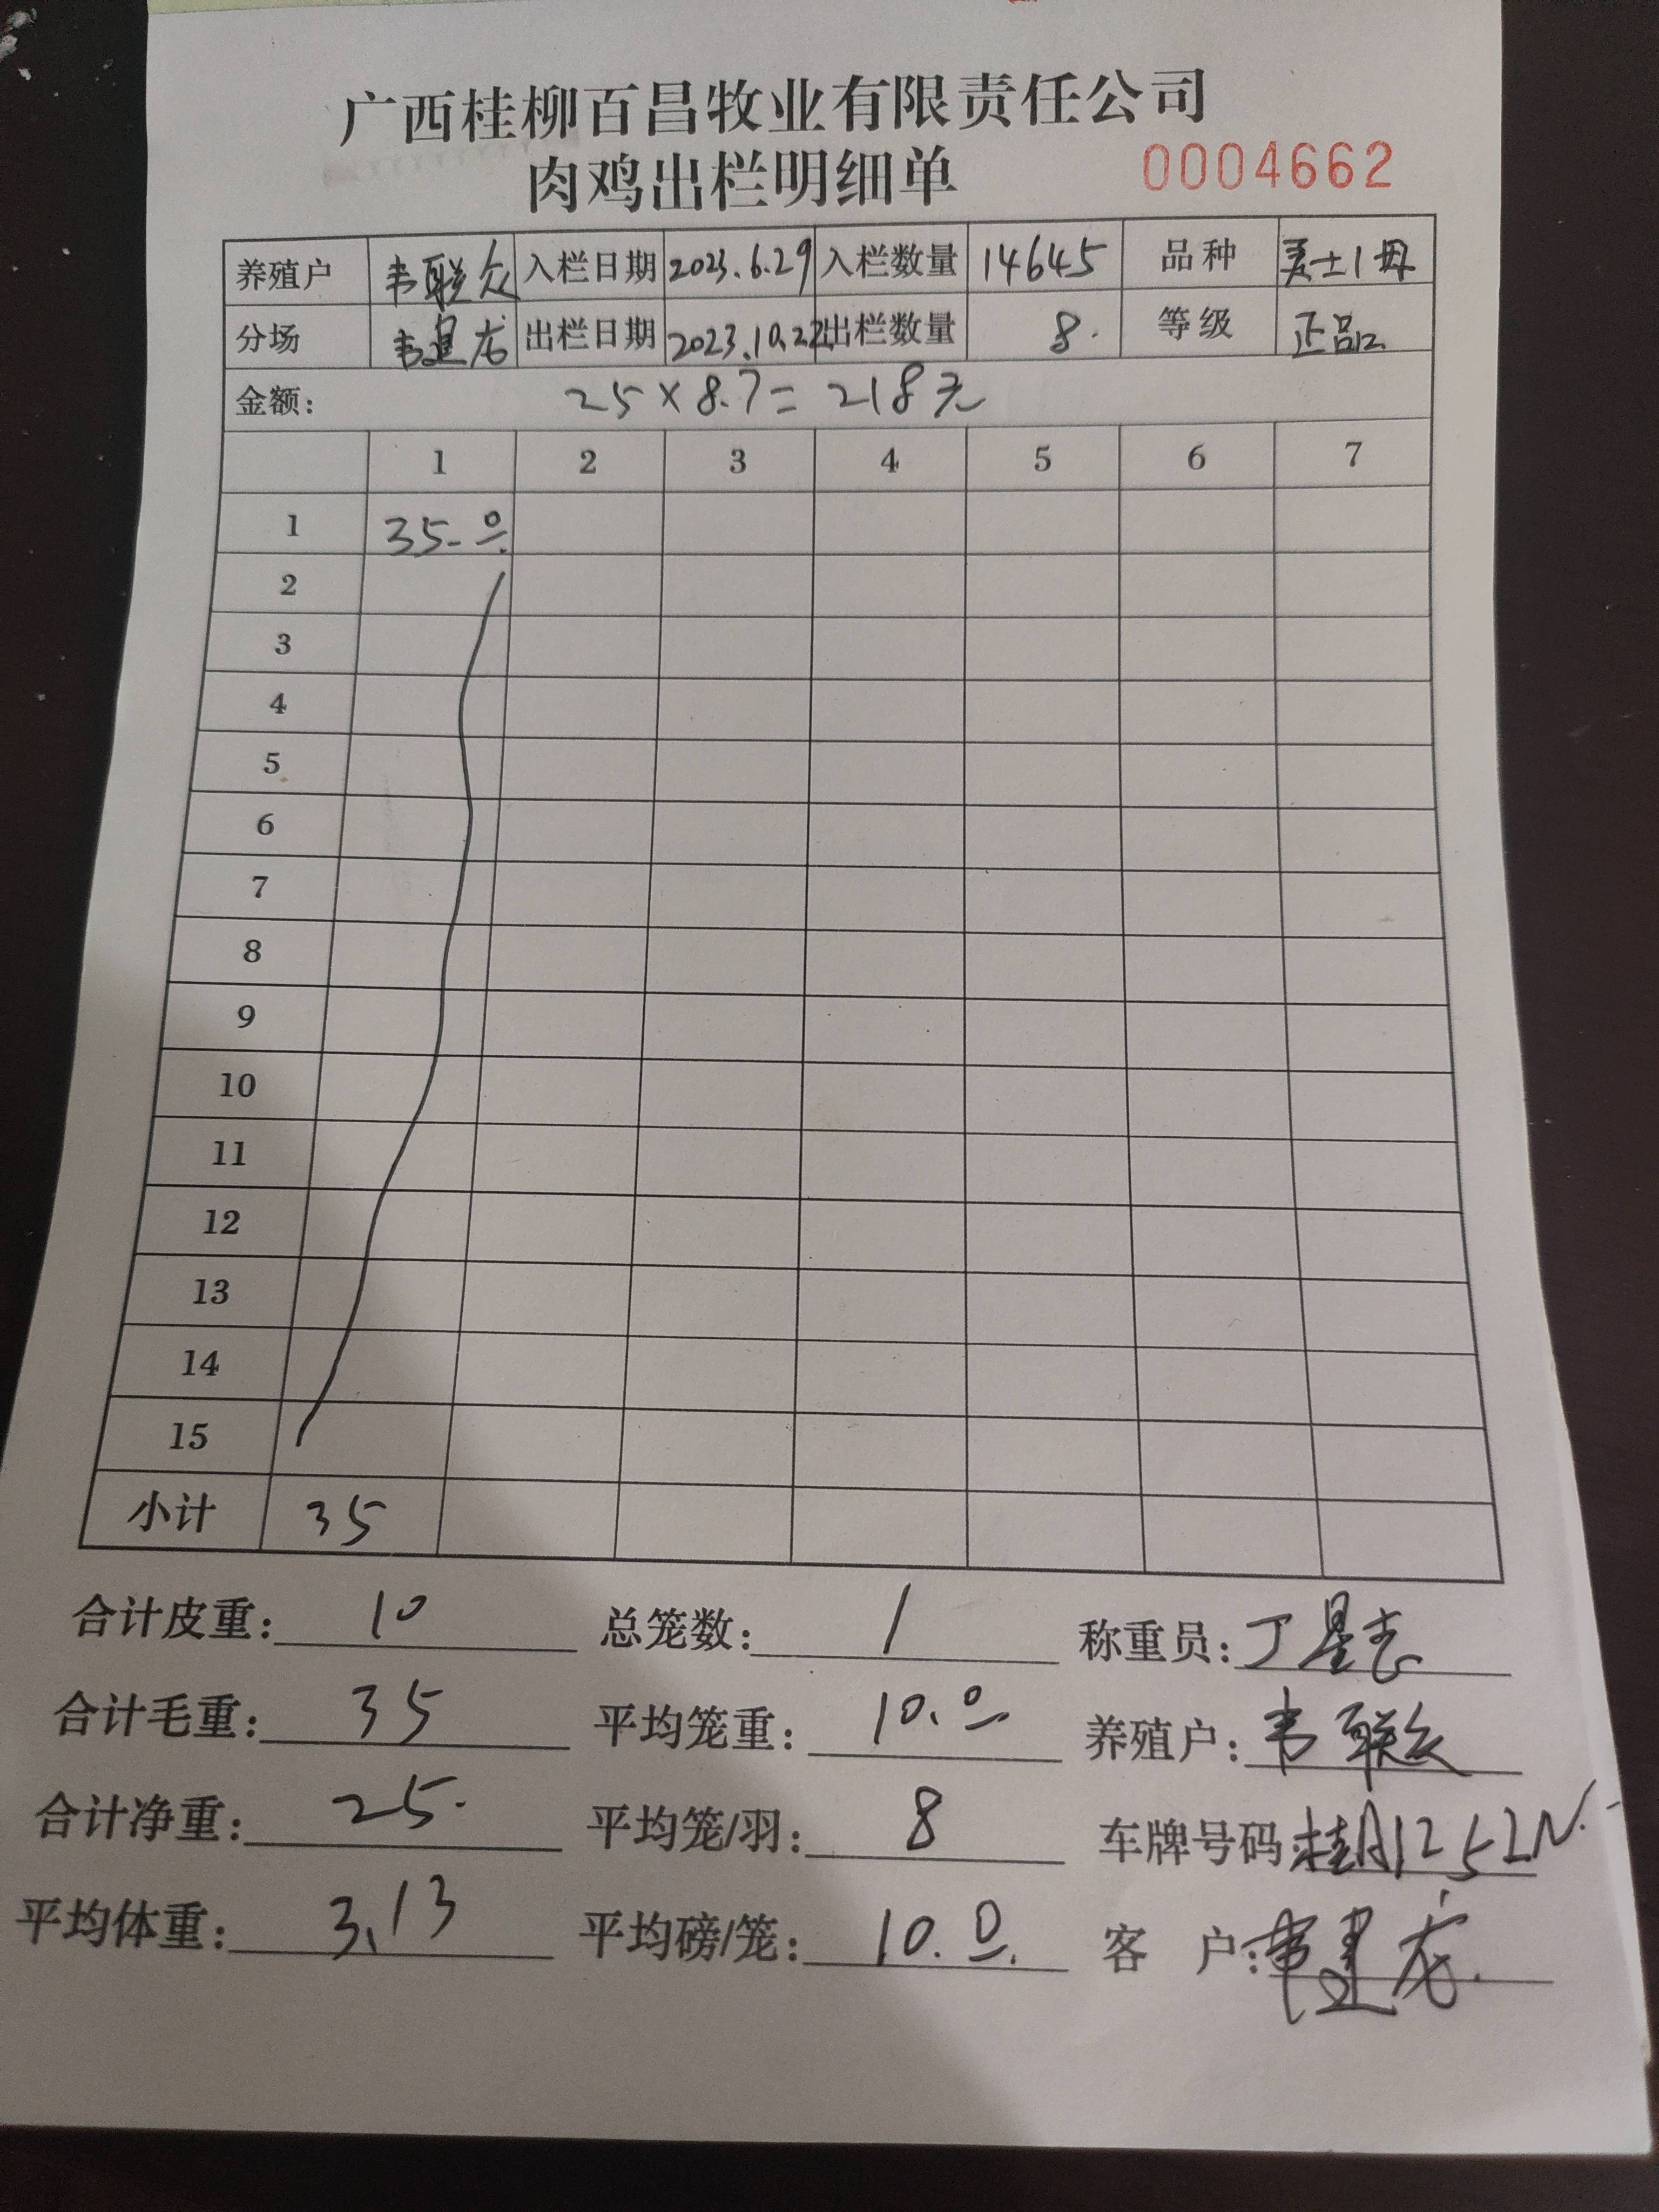 广西桂柳百昌牧业有限责任公司
肉鸡出栏明细单 0004662
养殖户 韦联众 入栏日期 2023.6.29 入栏数量 14645 品种 麦士1母
分场 韦建龙 出栏日期 2023.10.22 出栏数量 8. 等级 正品
金额: 25×8.7=218元
1 2 3 4 5 6 7
1 35.0
2
3
4
5
6
7
8
9
10
11
12
13
14
15
小计 35
合计皮重: 10 总笼数: 1 称重员: 丁
合计毛重: 35 平均笼重: 10.0 养殖户: 韦联众
合计净重: 25. 平均笼/羽: 8 车牌号码: 桂A1252N
平均体重: 3.13 平均磅/笼: 10.0. 客 户: 韦建龙